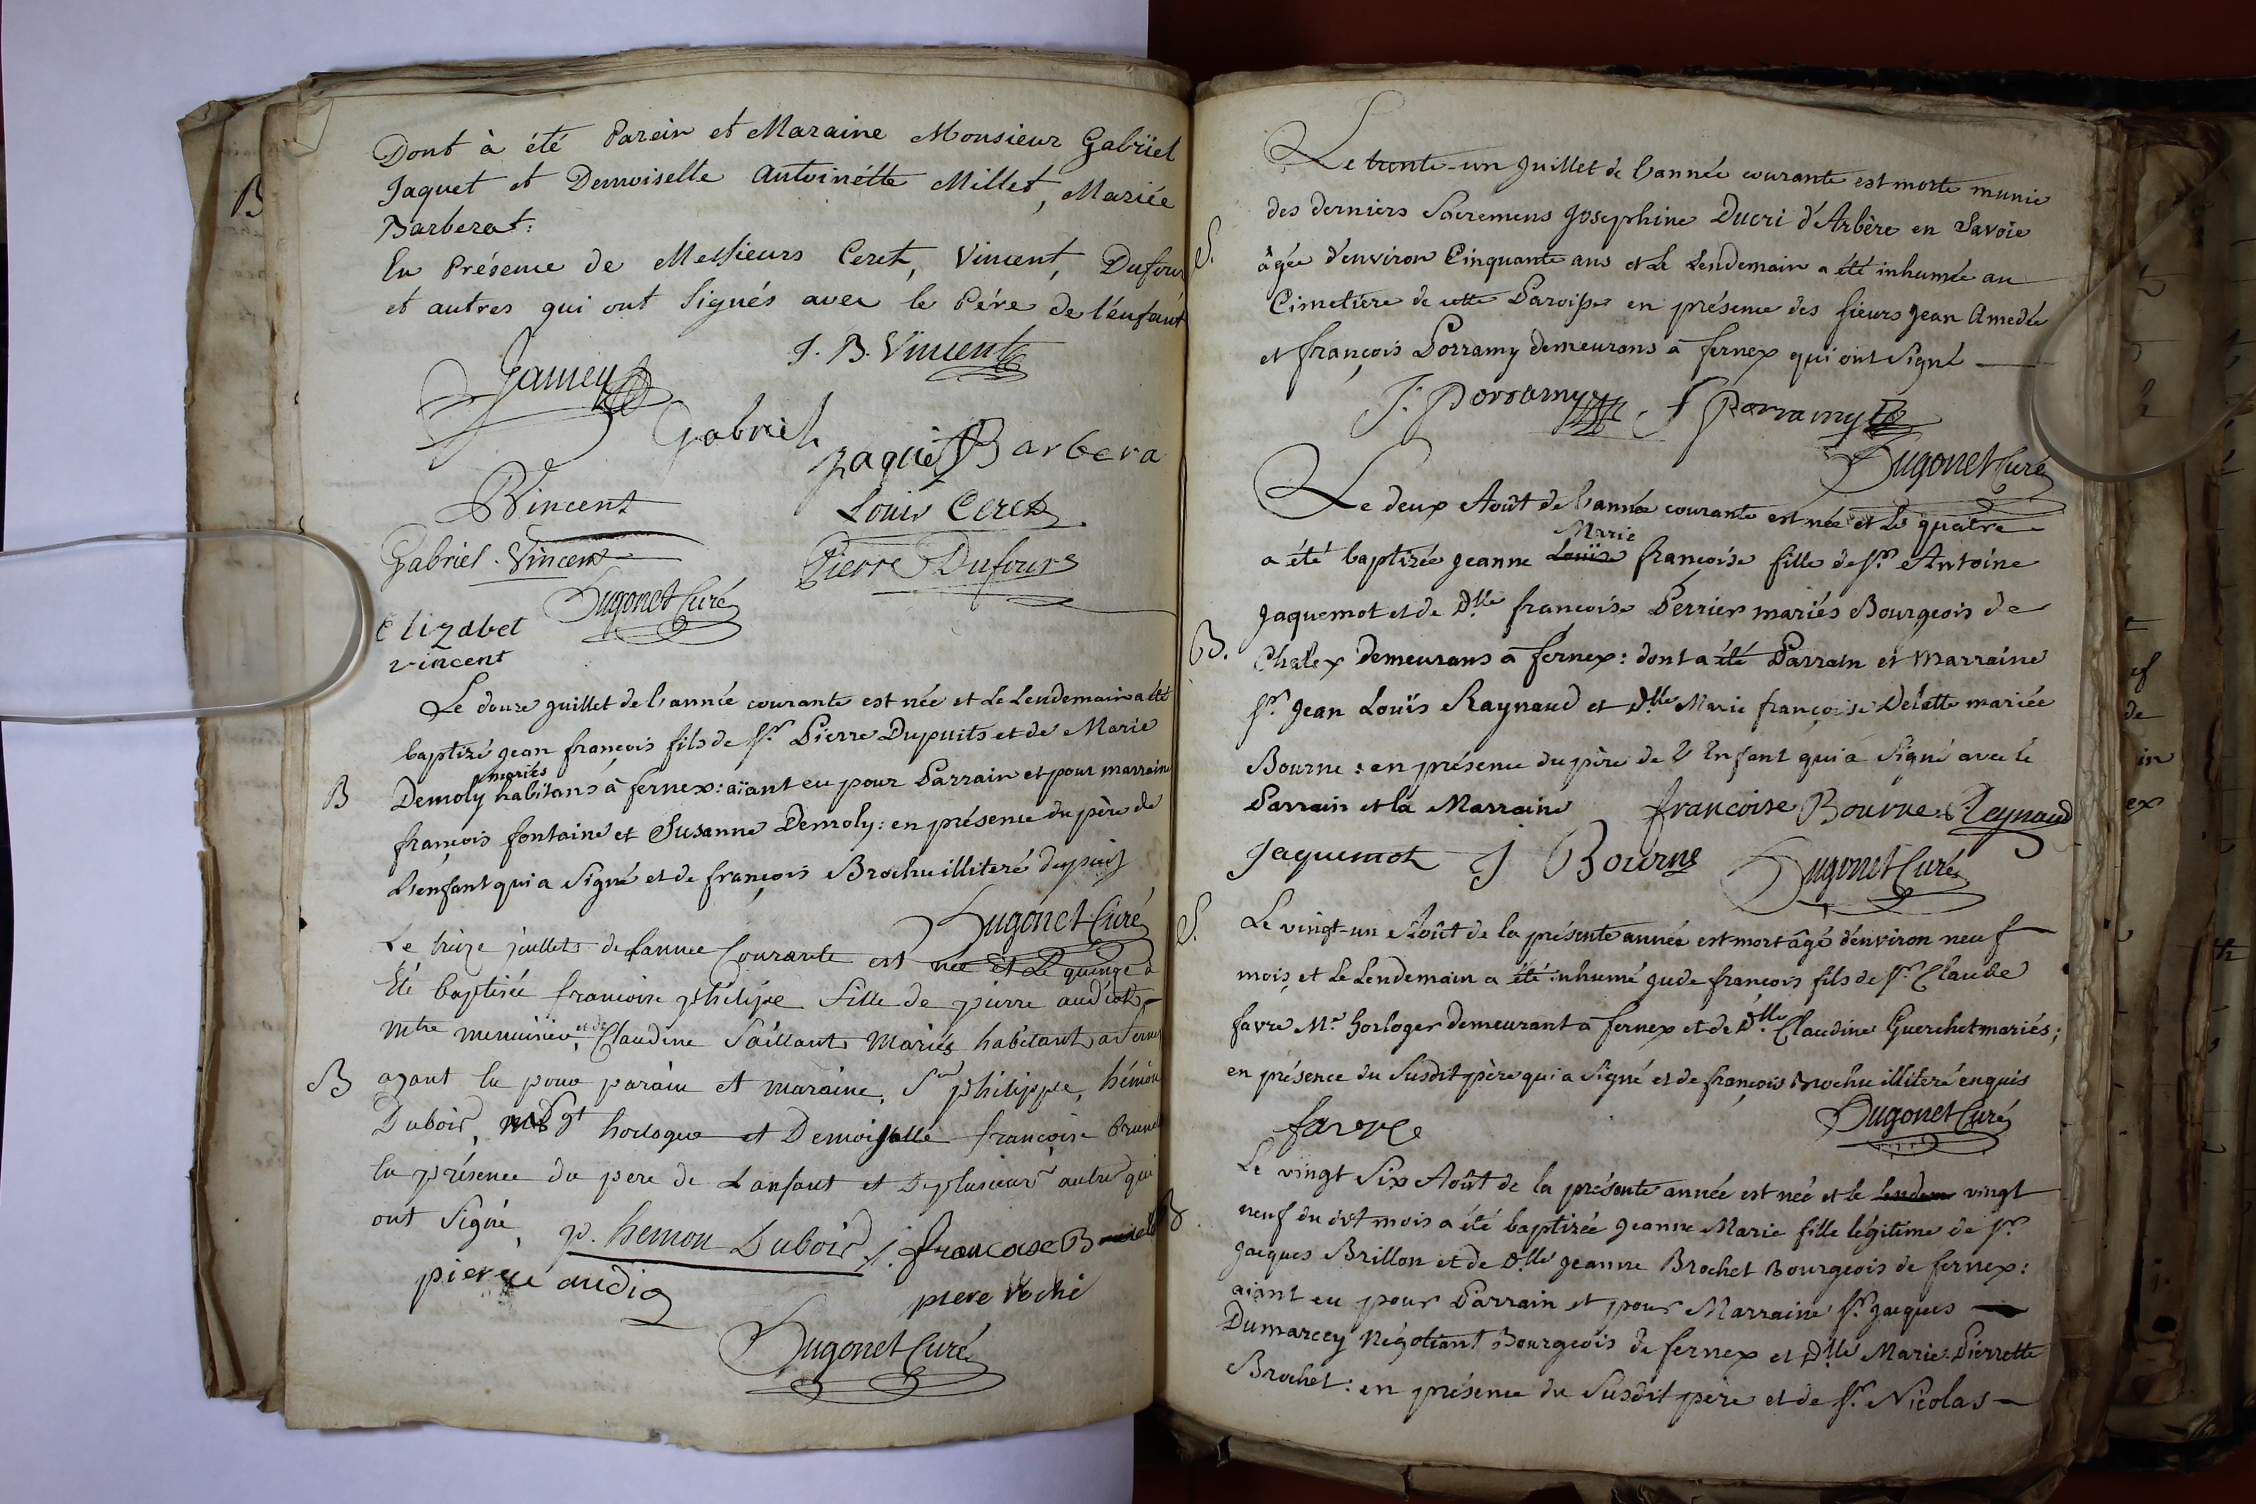 Dont à été Parein et Maraine Monsieur Gabriel
Jaquet et Demoiselle Antoinétte Millet, Mariée
Barberat:
En Présence de Messieurs Ceret, Vincent, Dufour
et autres qui ont Signés avec le Pére de l'enfant
J. B. Vincent
Jamey
Gabriel
Jaquet Barbera
Vincent
Louis Ceret
Gabriel. Vincent
Pierre Dufours
Hugonet Curé
Elizabet
vincent
Le douze juillet de l'année courante est née et le Lendemain a été
baptizé jean françois fils de Sr. Pierre Dupuits et de Marie
mariés
Demoly habitans à fernex: aïant eu pour Parrain et pour marraine
B
françois fontaine et Susanne Demoly: en présence du père de
L'enfant qui a Signé et de françois Brochu illiteré dupuis
Hugonet Curé
Le treize juillet de lannee Courante est née et Le quinze a
Été baptisée francoise philipe fille de pierre audiot
Mtre menuisier, et de Claudine Saillant Mariés habitant a ferney
B
ayant eu pour parain et maraine, Sr philippe, hémon
Dubois, horloger et Demoiselle françoise Brunel
en présence du pere de Lanfant et Deplusieurs autre qui
ont Signé, p. hemon Dubois f. francoise
piere audio
piere Roché
Hugonet Curé
Le trente-un Juillet de l'année courante est morte munie
des derniers Sacremens Josephine Ducri d'Arbère en Savoïe
S.
âgée d'environ Cinquante ans et Le Lendemain a été inhumée au
Cimetière de cette Paroisse en présence des Sieurs Jean Amedée
et françois Porramy demeurans à fernex qui ont Signé
J. Porramy f Porramy
Hugonet Curé
Le deux Août de l'année courante est née et Le quatre
Marie
a été baptizée Jeanne Louïse françoise fille de Sr. Antoine
Jaquemot et de Dlle françoise Perrier mariés Bourgeois de
B.
Chalex demeurans à fernex: dont a été Parrain et Marraine
Sr. Jean Louïs Raynaud et Dlle Marie françoise Delatte mariée
Bourne: en présence du père de l'Enfant qui a Signé avec le
Parrain et la Marraine françoise Bourne Reynaud
Jaquemot J Bourne Hugonet Curé
S.
Le vingt-un Août de la présente année est mort âgé d'environ neuf
mois, et Le Lendemain a été inhumé jude françois fils de Sr. Claude
favre Me. horloger demeurant à fernex et de Dlle Claudine Guerchet mariés;
en présence du Susdit père qui a Signé et de françois Brochu illiteré enquis
favre
Hugonet Curé
Le vingt Six Août de la présente année est née et le Lendem vingt
B
neuf du dit mois a été baptizée Jeanne Marie fille légitime de Sr.
Jacques Brillon et de Dlle Jeanne Brochet Bourgeois de fernex:
aïant eu pour Parrain et pour Marraine Sr. Jacques
Dumarcey Négotiant Bourgeois de fernex et Dlle Marie-Pierrette
Brochet: en présence du Susdit père et de Sr. Nicolas